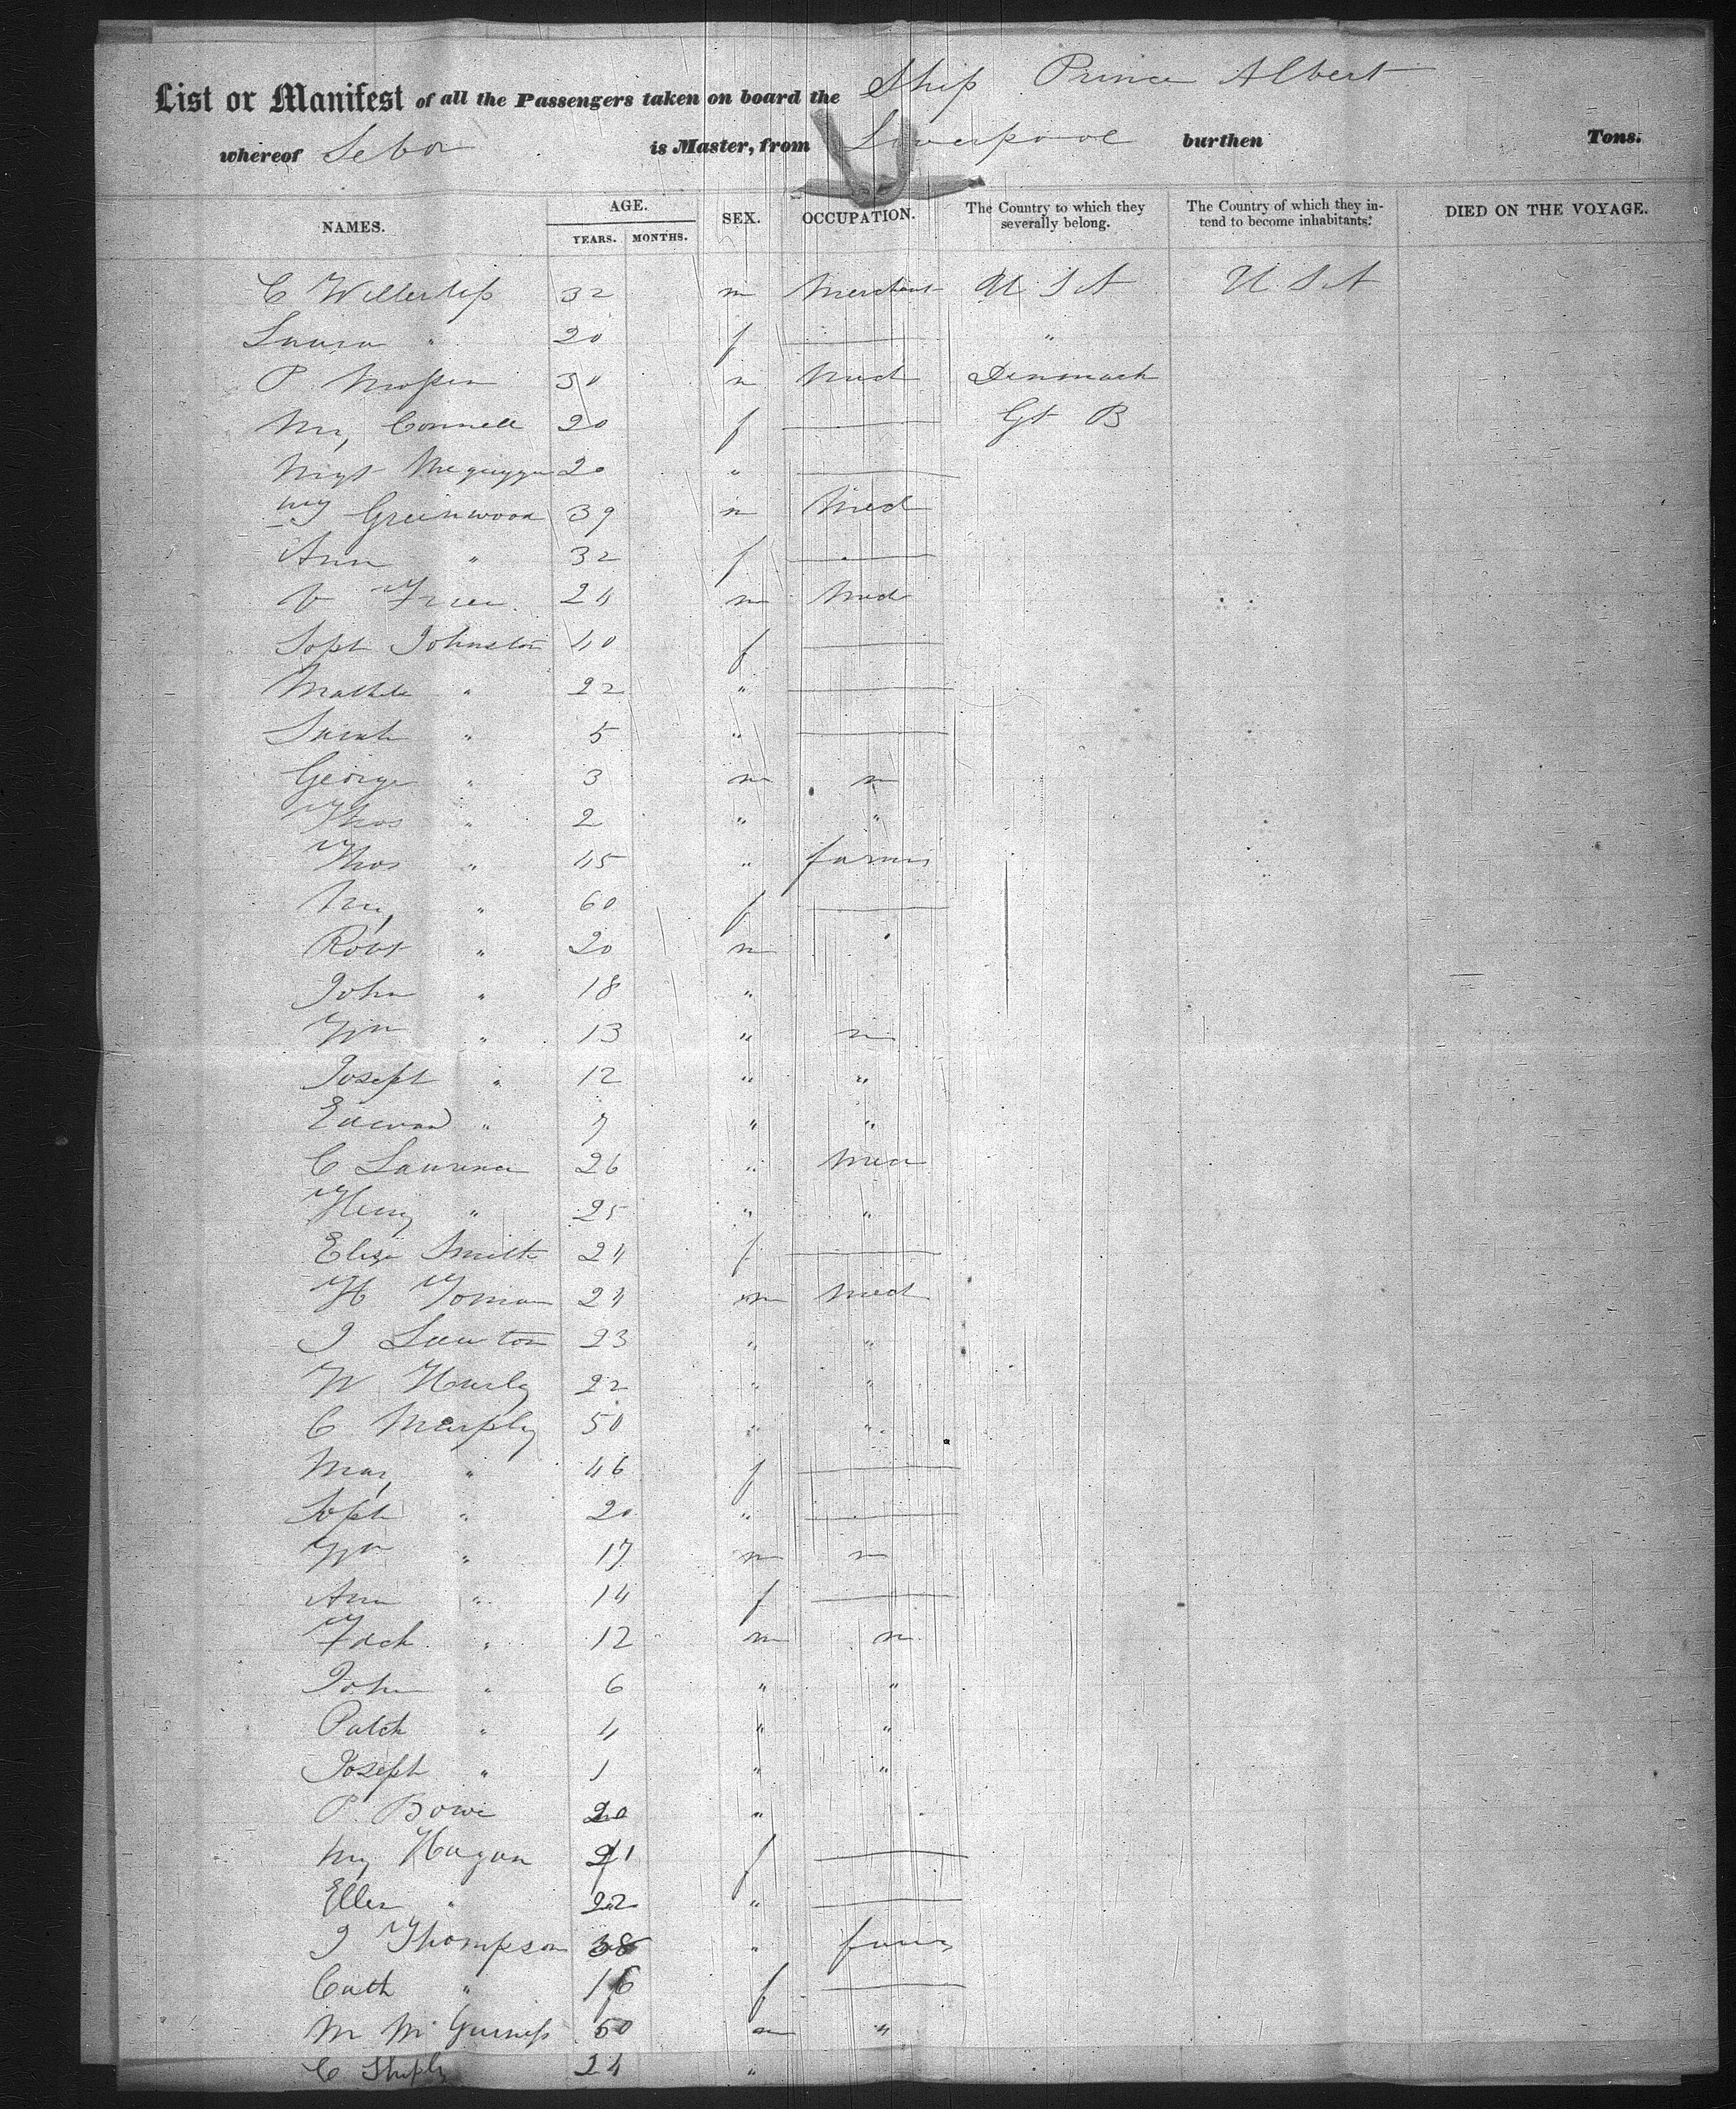 List or Manifest of all the Passengers taken on board the Ship Prince Albert
whereof Sebor is Master, from Liverpool burthen Tons.
NAMES. AGE. YEARS. MONTHS. SEX. OCCUPATION. The Country to which they severally belong. The Country of which they intend to become inhabitants. DIED ON THE VOYAGE.
C 32 m Merchant U S A U S A
Laura " 20 f — "
P 30 m Mech Denmark
Connell 20 f — Gt B
Mgt 20 " —
Greenwood 39 m
Ann " 32 f —
24 m
Soph Johnston 40 f —
" 22 " —
Sarah " 5 " —
George " 3 m n
Thos " 2 " "
Thos " 45 " farmer
" 60 f —
Robt " 20 m
John " 18 "
Wm " 13 " n
Joseph " 12 " "
Edward " 7 " "
C Laurence 26 "
Henry " 25 " "
Eliza Smith 24 f —
H 24 m Mech
J 23 " "
W Hurly 22 " "
C Murphy 50 " "
Mary " 46 f —
Soph " 20 " —
Wm " 17 m n
Ann " 14 f —
" 12 m n
John " 6 " "
Patck " 4 " "
Joseph " 1 " "
P Bowe 20 "
My Hagan 21 f —
Ellen " 22 " —
J Thompson 38 "
Cath " 16 f —
M 50 m "
C 24 "